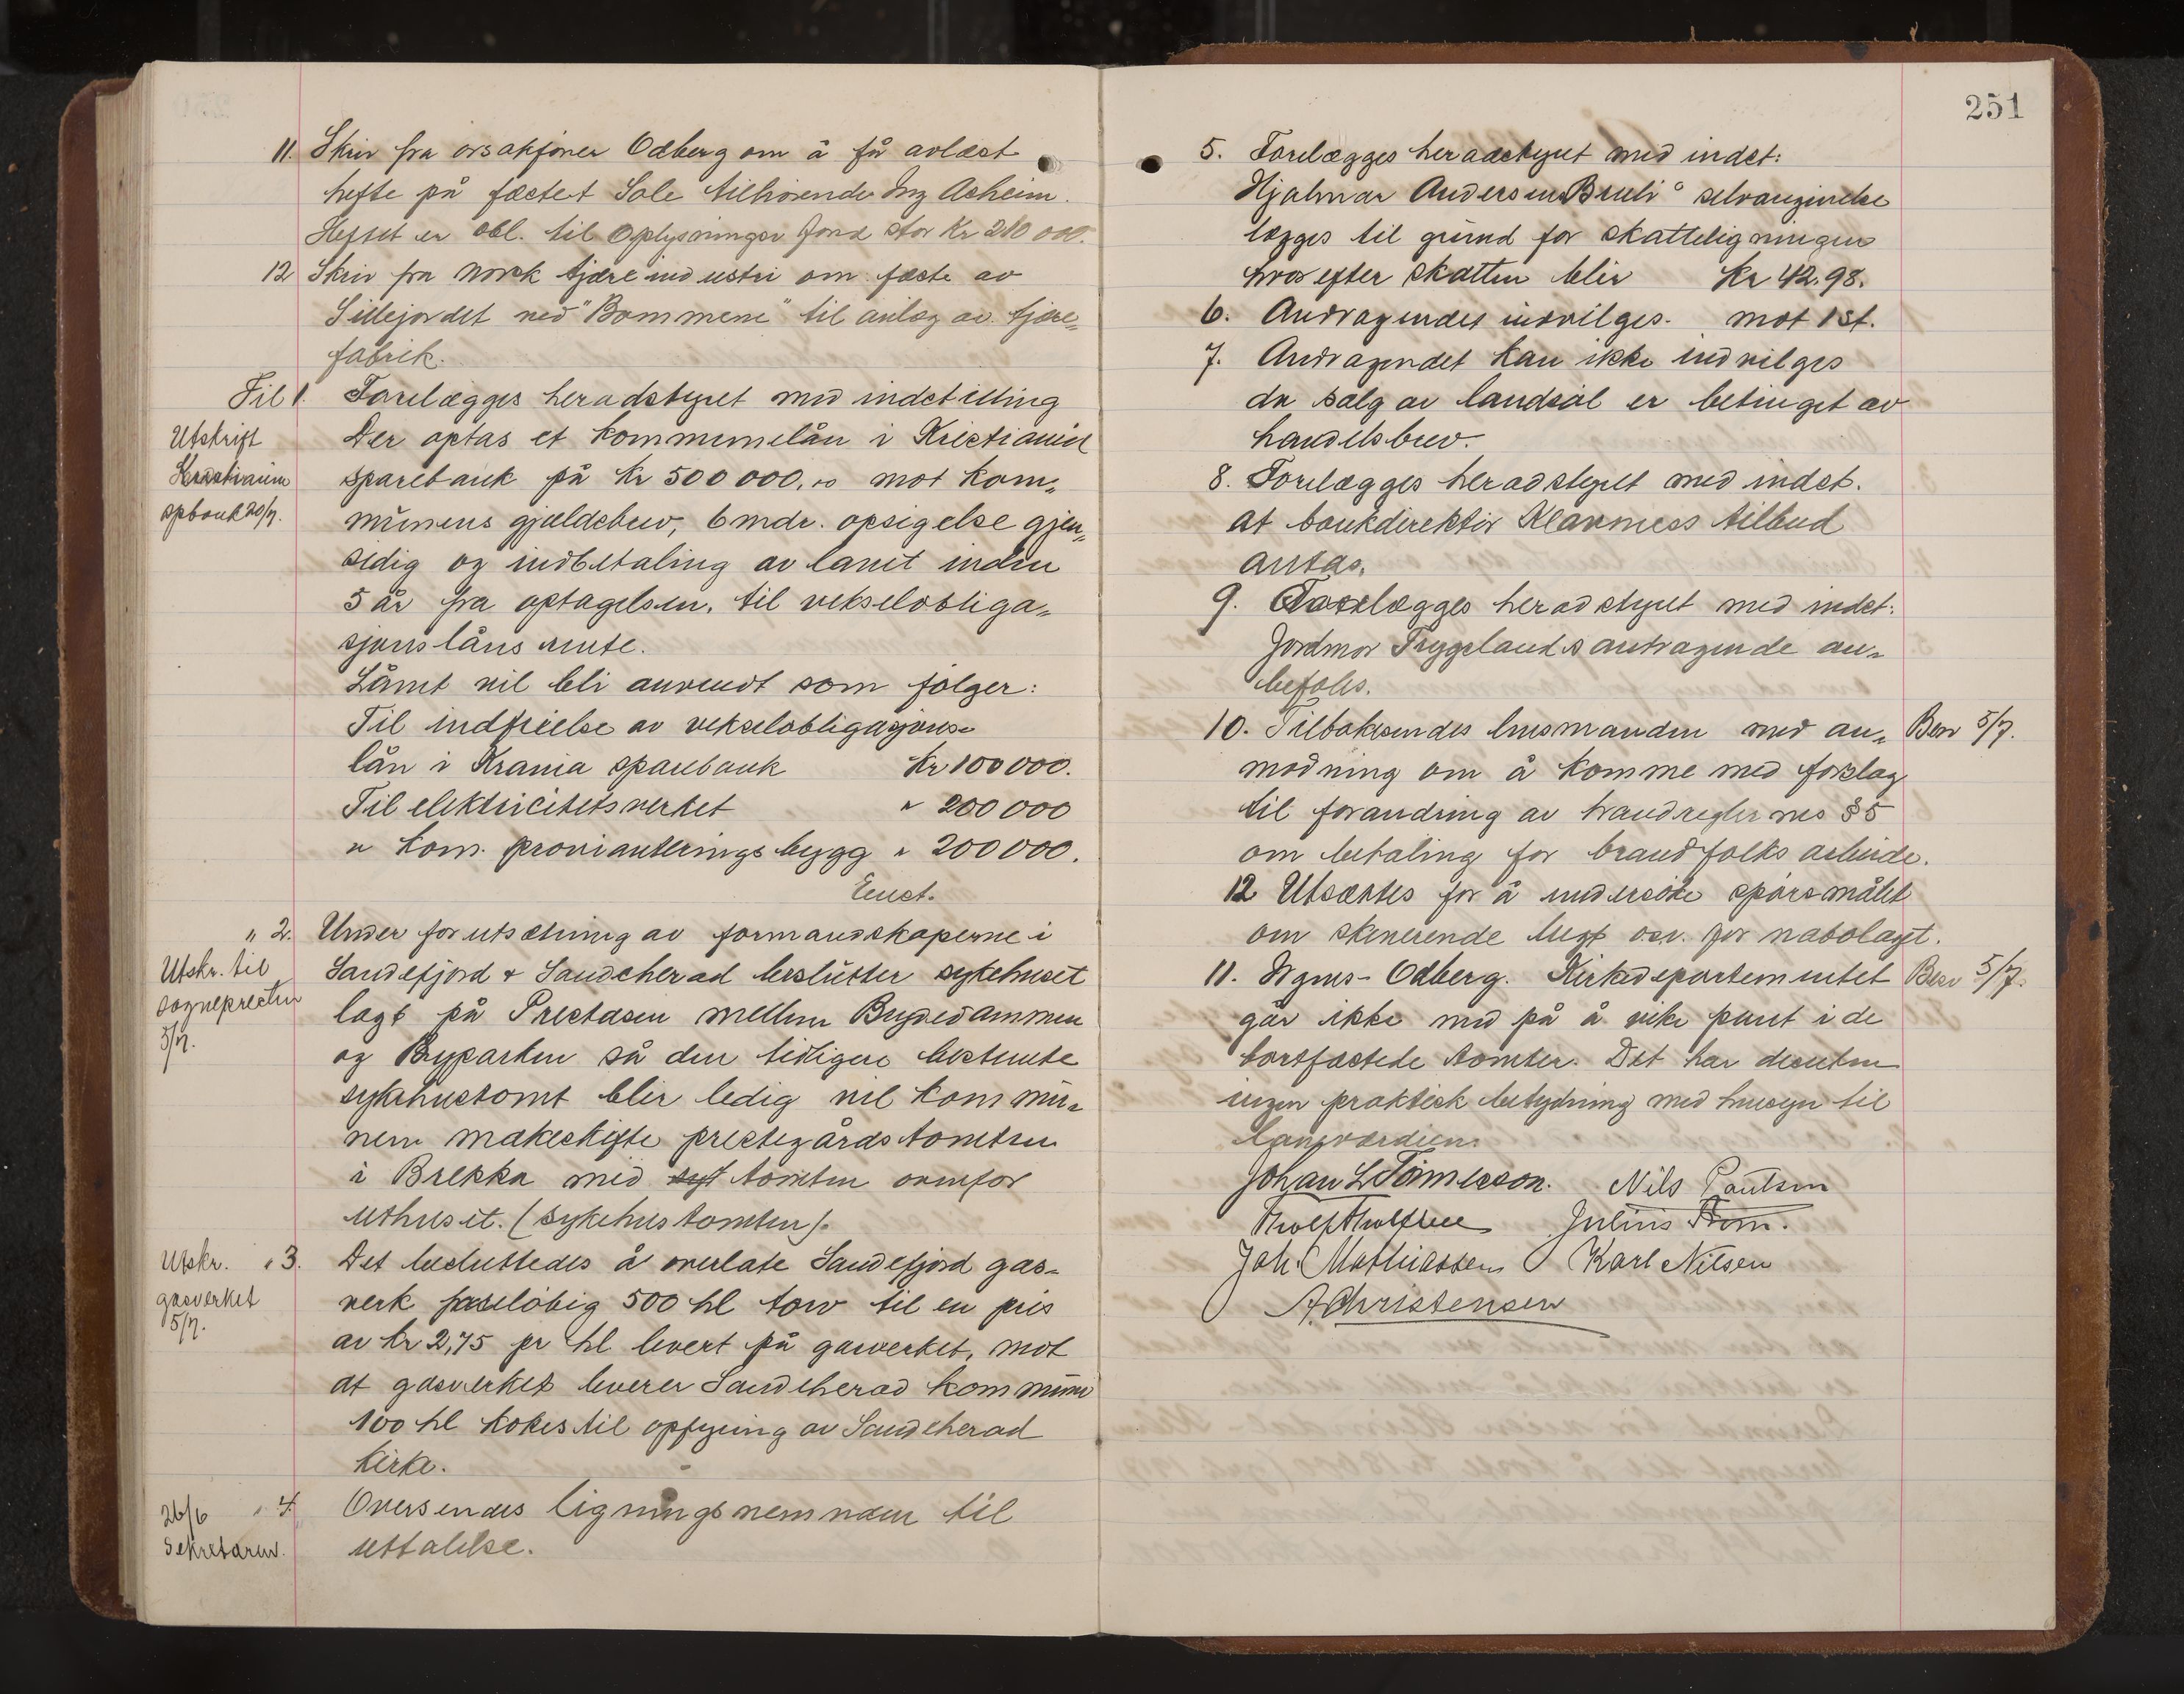 11. Skriv fra orsakfører Ødberg om å få avlæst
hefte på fæstet Sole tilhørende Ing Asheim.
Heftet er obl. til Oplysningsv. fond stor Kr 210 000.
12 Skriv fra norsk tjæreindustri om fæste av
Sillejordet ved "Bommene" til anlæg av tjære-
fabrik.
Til 1. Forelægges heradstyret med indstilling
Utskrift
Kristiania
spbank 20/7.
Der optas et kommunelån i Kristiania
sparebank på Kr 500 000,00 mot kom-
munens gjældsbrev, 6 mdr. opsigelse gjen-
sidig og indbetaling av lånet inden
5 år fra optagelsen, til vekselobliga-
sjonslåns rente.
Lånet vil bli anvendt som følger:
Til indfrielse av vekselobligasjons-
lån i Krania sparebank Kr 100 000.
Til elektricitetsverket " 200 000
" kom. provianteringsbygg " 200 000.
Enst.
" 2. Under forutsætning av formandskaperne i
Utskr. til
sognepresten
5/7.
Sandefjord & Sandeherad beslutter sykehuset
lagt på Preståsen mellem Bugdedammen
og Byparken så den tidligere bestemte
sykehustomt blir ledig vil kommu-
nen makeskifte prestegårdstomten
i Brekka med syk tomten ovenfor
uthuset. (sykehustomten).
Utskr.
gasverket
5/7.
" 3. Det besluttedes å overlate Sandefjord gas-
verk foreløbig 500 hl torv til en pris
av kr 2,75 pr hl levert på gasverket, mot
at gasverket leverer Sandeherad kommune
100 hl kokes til opfyring av Sandeherad
kirke.
26/6
Sekretæren.
" 4. Oversendes ligningsnemnden til
uttalelse.
251
5. Forelægges heradstyret med indst:
Hjalmar Andersen Bruli's selvangivelse
lægges til grund for skatteligningen
hvorefter skatten blir Kr 42.98.
6. Andragendet indvilges. mot 1 st.
7. Andragendet kan ikke indvilges
da salg av landsøl er betinget av
handelsbrev.
8. Forelægges heradstyret med indst.
at bankdirektør Klavness tilbud
antas.
9. Forelægges heradstyret med indst:
Jordmor Tryggelands antragende an-
befales.
10. Tilbakesendes husmanden med an- Besv 5/7.
modning om å komme med forslag
til forandring av brandreglernes § 5
om betaling for brandfolks arbeide.
12 Utsættes for å undersøke spørsmålet
om sjenerende lugt osv. for nabolaget.
11. Wgns-Ødberg. Kirkedepartementet Besv 5/7.
går ikke med på å vike panet i de
bortfæstede tomter. Det har desuten
ingen praktisk betydning med hensyn til
låneværdien.
Johan L Tønnesson. Nils Paulsen
Thv Julius Bom.
Joh. Mathiassen Karl Nilsen
A. Christensen